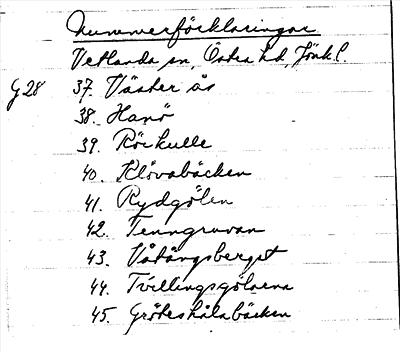 Nummerförklaringar
Vetlanda sn, Östra hd, Jönk.l.
G 28 37. Väster ås
38. Hanö
39. Rörkulle
40. Klövabäcken
41. Rydgölen
42. Tenngruvan
43. Våtängsberget
44. Tvillingsgölarna
45. Gröteshålabäcken